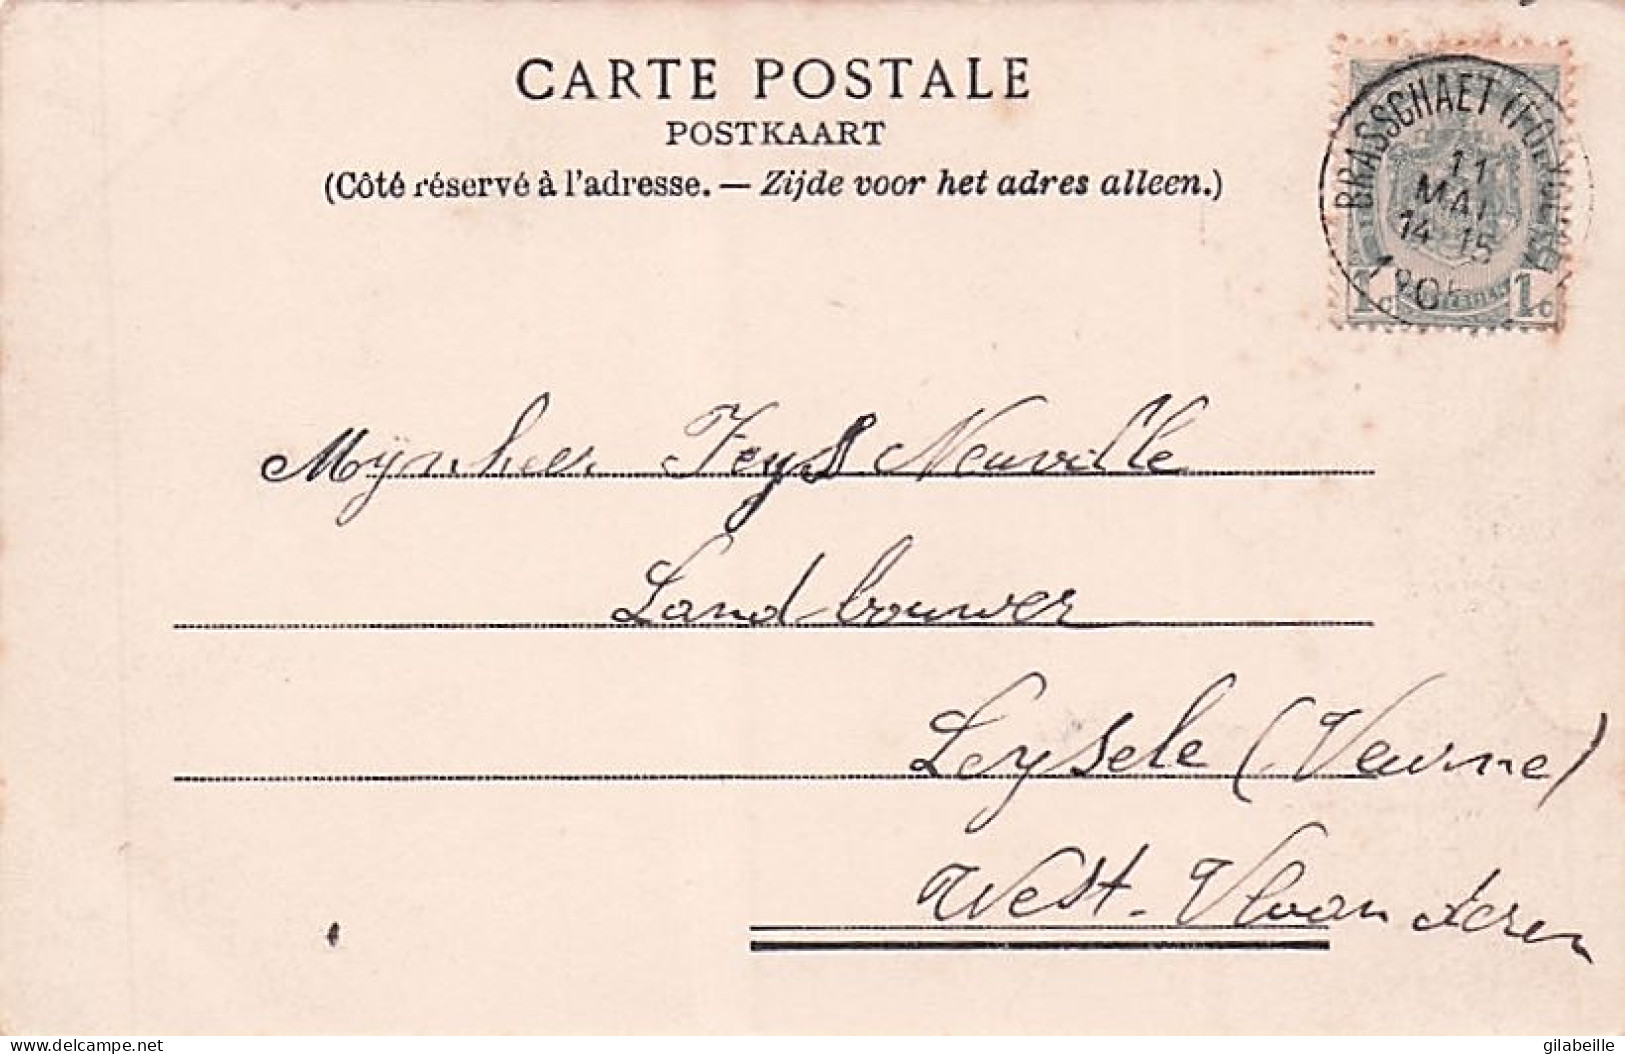 CARTE POSTALE
POSTKAART
(Côté réservé à l'adresse. — Zijde voor het adres alleen.)
BRASSCHAET (POLYGONE)
11
MAI
14 15
190
1c 1c
Mÿnheer Feys Neuville
Landbouwer
Leysele (Veurne)
West-Vloanderen
delcampe.net
gilabeille